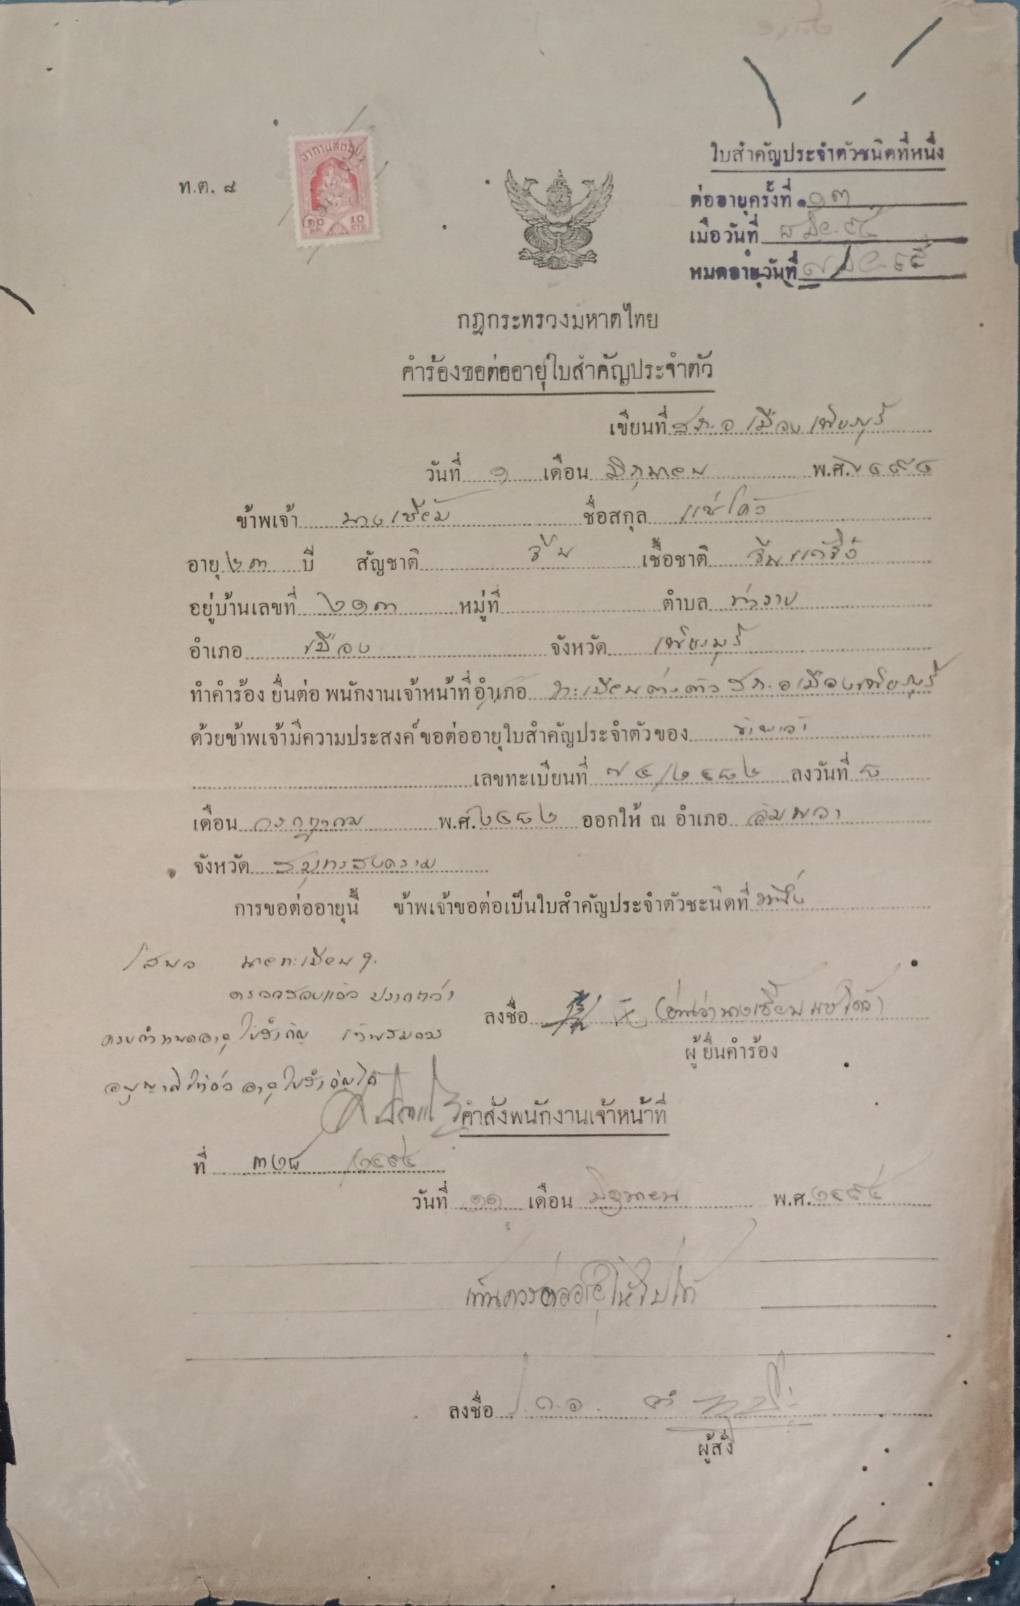 ท.ต. ๘
อากรแสตมป์
๑๐ 10
ใบสำคัญประจำตัวชนิดที่หนึ่ง
ต่ออายุครั้งที่ ๑๓
เมื่อวันที่ ๘ มิ.ย. ๙๔
หมดอายุวันที่ ๗ มิ.ย. ๙๕
กฎกระทรวงมหาดไทย
คำร้องขอต่ออายุใบสำคัญประจำตัว
เขียนที่ ส.ภ.อ เมืองเพ็ชรบุรี
วันที่ ๑ เดือน มิถุนายน พ.ศ. ๒๔๙๔
ข้าพเจ้า นางเซี้ยม ชื่อสกุล แซ่โค้ว
อายุ ๒๓ ปี สัญชาติ จีน เชื้อชาติ จีนแต้จิ๋ว
อยู่บ้านเลขที่ ๒๑๓ หมู่ที่ ตำบล ท่าราบ
อำเภอ เมือง จังหวัด เพ็ชรบุรี
ทำคำร้อง ยื่นต่อ พนักงานเจ้าหน้าที่ อำเภอ ทะเบียนต่างด้าว ส.ภ.อ เมืองเพ็ชรบุรี
ด้วยข้าพเจ้ามีความประสงค์ ขอต่ออายุใบสำคัญประจำตัวของ ข้าพเจ้า
เลขทะเบียนที่ ๗๔/๒๔๘๒ ลงวันที่ ๘
เดือน กรกฎาคม พ.ศ. ๒๔๘๒ ออกให้ ณ อำเภอ อัมพวา
จังหวัด สมุทรสงคราม
การขอต่ออายุนี้ ข้าพเจ้าขอต่อเป็นใบสำคัญประจำตัวชะนิดที่ หนึ่ง
เสนอ นายทะเบียน ฯ
ตรวจสอบแล้ว ปรากฏว่า
ครบกำหนดอายุใบสำคัญ เห็นสมควร
อนุญาตให้ต่ออายุใบสำคัญได้
ลงชื่อ (อ่านว่านางเซี้ยม แซ่โค้ว)
ผู้ยื่นคำร้อง
คำสั่งพนักงานเจ้าหน้าที่
ที่ ๓๒๘ /๒๔๙๔
วันที่ ๑๑ เดือน มิถุนายน พ.ศ. ๒๔๙๔
เห็นควรต่ออายุให้ไปได้
ลงชื่อ
ผู้สั่ง